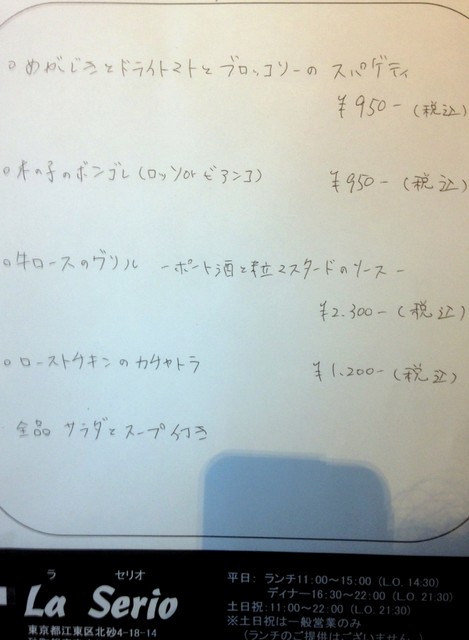 ○ めかじきとドライトマトとブロッコリーの スパゲティ
¥950-(税込)
○木の子のボンゴレ(ロッソorビアンコ) ¥950-(税込)
○牛ロースのグリル -ポート酒と粒マスタードのソース-
¥2.300-(税込)
○ローストチキンのカチャトラ ¥1.200-(税込)
全品 サラダとスープ付き
ラ セリオ
La Serio
東京都江東区北砂4-18-14
平日: ランチ11:00〜15:00 (L.O. 14:30)
ディナー16:30〜22:00 (L.O. 21:30)
土日祝:11:00〜22:00 (L.O. 21:30)
※土日祝は一般営業のみ
(ランチのご提供はございません